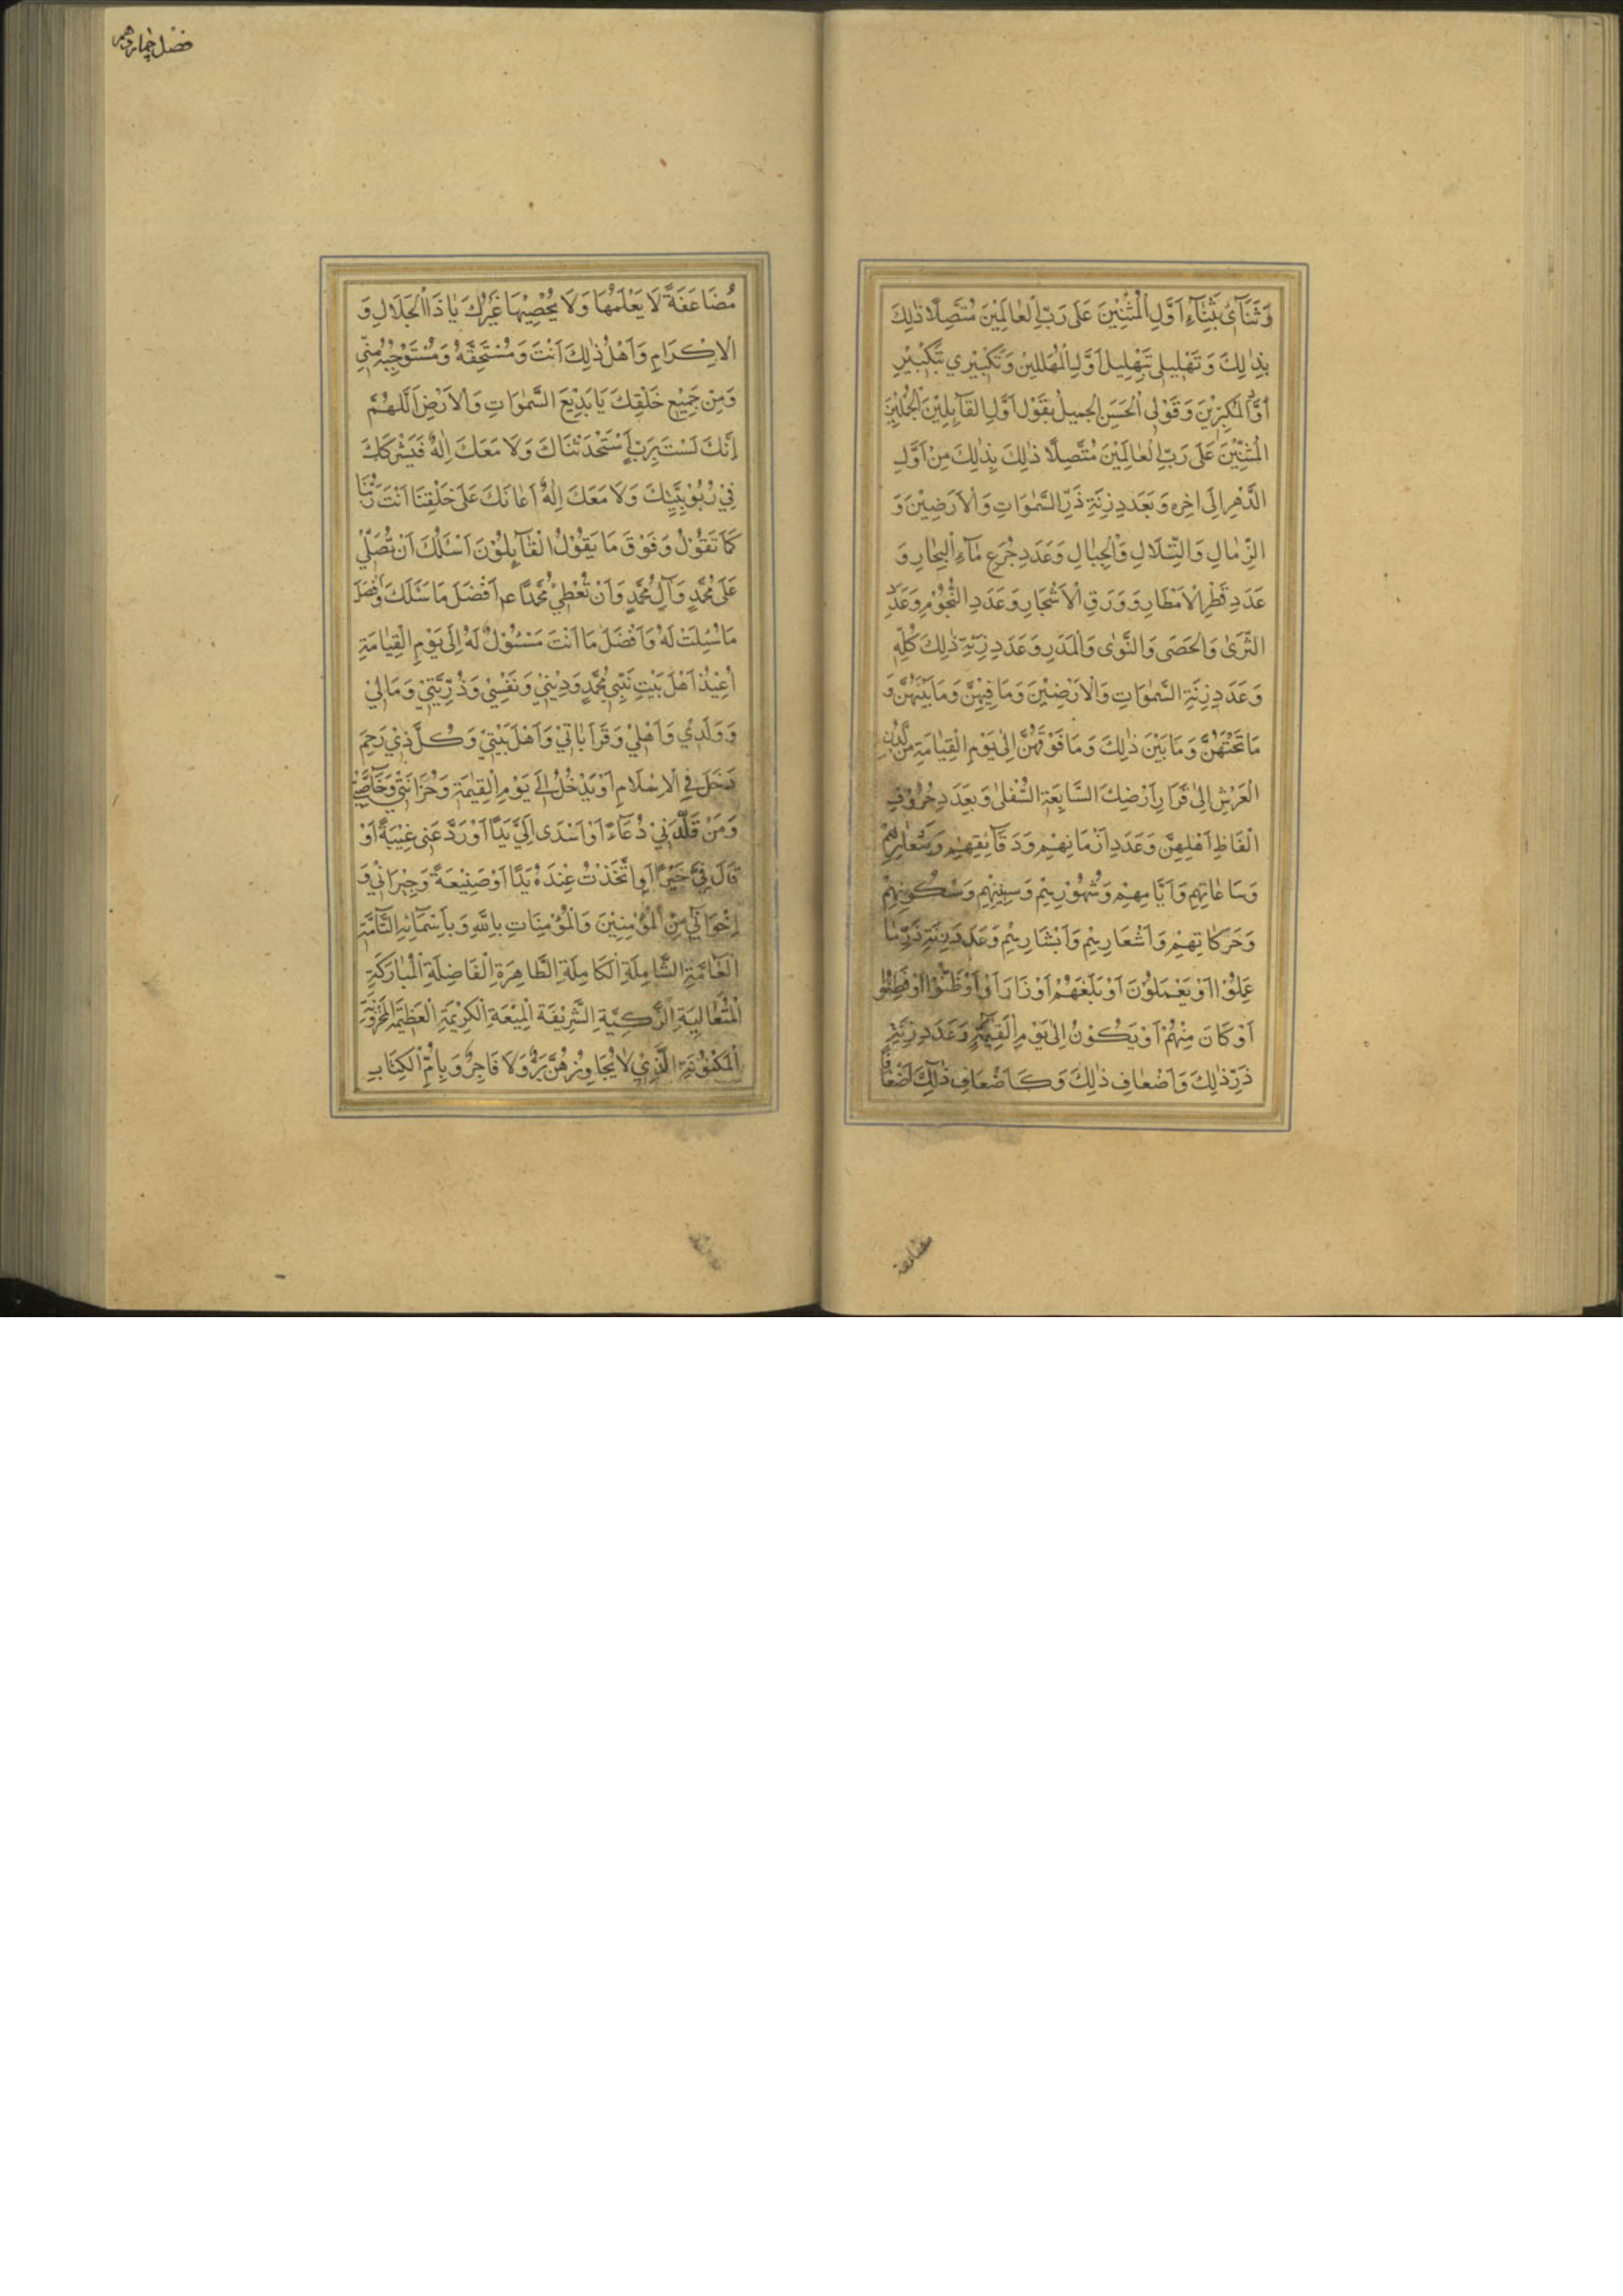 وَثَنَآئِ بِثَنَآءِ اَوَّلِ الْمُثْنِيْنَ عَلٰى رَبِّ الْعٰالَمِيْنَ مُتَّصِلًا ذٰلِكَ
بِذٰلِكَ وَتَهْلِيلى بِتَهْلِيلِ اَوَّلِ الْمُهَلِّلينَ وَتَكْبِيْري بِتَكْبِيْرِ
اَوَّلِ الْمُكَبِّرِيْنَ وَقَوْلِى الْحَسَنِ الْجميلِ بِقَوْلِ اَوَّلِ الْقَآئِلِيْنَ الْمُجْمِلِيْنَ
الْمُثْنِيْنَ عَلٰى رَبِّ الْعٰالَمِيْنَ مُتَّصِلًا ذٰلِكَ بِذٰلِكَ مِنْ اَوَّلِ
الدَّهْرِ اِلٰى اٰخِرِه وَبِعَدَدِ زِنَةِ ذَرِّ السَّمٰوَاتِ وَالْاَرَضِيْنَ وَ
الرِّمٰالِ وَالتِّلَالِ وَالْجِبٰالِ وَعَدَدِ جُرَعِ مٰآءِ الْبِحٰارِ وَ
عَدَدِ قَطْرِ الْاَمْطَارِ وَوَرَقِ الْاَشْجَارِ وَعَدَدِ النُّجُوْمِ وَعَدَدِ
الثَّرٰى وَالْحَصٰى وَالنَّوٰى وَالْمَدَرِ وَعَدَدِ زِنَةِ ذٰلِكَ كُلِّهِ
وَعَدَدِ زِنَةِ السَّمٰوَاتِ وَالْاَرَضِيْنَ وَمَا فِيْهِنَّ وَمَا بَيْنَهُنَّ وَ
مَا تَحْتَهُنَّ وَمَا بَيْنَ ذٰلِكَ وَمَا فَوْقَهُنَّ اِلٰى يَوْمِ الْقِيٰامَةِ مِنْ لَدُنِ
الْعَرْشِ اِلٰى قَرَارِ اَرْضِكَ السَّابِعَةِ السُّفْلٰى وَبِعَدَدِ حُرُوْفِ
اَلْفَاظِ اَهْلِهِنَّ وَعَدَدِ اَزْمَانِهِمْ وَدَقَآئِقِهِمْ وَشَعٰآئِرِهِمْ
وَسَاعٰاتِهِمْ وَاَيَّامِهِمْ وَشُهُوْرِهِمْ وَسِنِيْهِمْ وَسُكُوْنِهِمْ
وَحَرَكَاتِهِمْ وَاَشْعَارِهِمْ وَاَبْشَارِهِمْ وَعَدَدِ زِنَةِ ذَرِّ مٰا
عَمِلُوْا اَوْ يَعْمَلُوْنَ اَوْ بَلَغَهُمْ اَوْ رَاَوْا اَوْ ظَنُّوْا اَوْ فَطِنُوا
اَوْ كَانَ مِنْهُمْ اَوْ يَكُوْنُ اِلٰى يَوْمِ الْقِيٰمَةِ وَعَدَدِ زِنَةِ
ذَرِّ ذٰلِكَ وَاَضْعٰافِ ذٰلِكَ وَكَاَضْعَافِ ذٰلِكَ اَضْعَافًا
مضاعفة
فصل چهاردهم
مُضَاعَفَةً لَا يَعْلَمُهَا وَلَا يُحْصِيْهَا غَيْرُكَ يٰا ذَا الْجَلَالِ وَ
الْاِكْرَامِ وَاَهْلُ ذٰلِكَ اَنْتَ وَمُسْتَحِقُّهُ وَمُسْتَوْجِبُهُ مِنّي
وَمِنْ جَمِيْعِ خَلْقِكَ يَا بَدِيْعَ السَّمٰوَاتِ وَالْاَرْضِ اَللّٰهُمَّ
اِنَّكَ لَسْتَ بِرَبٍّ اَسْتَحْدَثْنَاكَ وَلَا مَعَكَ اِلٰهٌ فَيَشْرَكَكَ
فِيْ رُبُوْبِيَّتِكَ وَلَا مَعَكَ اِلٰهٌ اَعٰانَكَ عَلٰى خَلْقِنَا اَنْتَ رَبُّنَا
كَمَا تَقُوْلُ وَفَوْقَ مَا يَقُوْلُ الْقٰآئِلُوْنَ اَسْئَلُكَ اَنْ تُصَلِّيَ
عَلٰى مُحَمَّدٍ وَآلِ مُحَمَّدٍ وَاَنْ تُعْطِيَ مُحَمَّدًا عم اَفْضَلَ مَا سَئَلَكَ وَاَفْضَلَ
مَا سُئِلْتَ لَهُ وَاَفْضَلَ مَا اَنْتَ مَسْئُوْلٌ لَهُ اِلٰى يَوْمِ الْقِيٰامَةِ
اُعِيْذُ اَهْلَ بَيْتِ نَبِيّى مُحَمَّدٍ وَدِيْنِيْ وَنَفْسِيْ وَذُرِّيَّتِيْ وَمَالِيْ
وَوَلَدِيْ وَاَهْلِيْ وَقَرَابٰاتِيْ وَاَهْلَ بَيْتِيْ وَكُلَّ ذِيْ رَحِمٍ
دَخَلَ فِي الْاِسْلَامِ اَوْ يَدْخُلُ اِلٰى يَوْمِ الْقِيٰمَةِ وَحُزَانَتِيْ وَخَآصَّتِيْ
وَمَنْ قَلَّدَنِيْ دُعَآءً اَوْ اَسْدٰى اِلَيَّ يَدًا اَوْ رَدَّ عَنّى غِيْبَةً اَوْ
قَالَ فِيَّ خَيْرًا اَوِ اتَّخَذْتُ عِنْدَهُ يَدًا اَوْ صَنِيْعَةً وَجِيْرَانِيْ وَ
اِخْوَانِيْ مِنَ الْمُؤْمِنِيْنَ وَالْمُؤْمِنَاتِ بِاللّٰهِ وَبِاَسْمَآئِهِ التَّآمَّةِ
الْعٰآمَّةِ الشَّامِلَةِ الْكَامِلَةِ الطَّاهِرَةِ الْفَاضِلَةِ الْمُبٰارَكَةِ
الْمُتَعٰالِيَةِ الزَّكِيَّةِ الشَّرِيْفَةِ الْمَنِيْعَةِ الْكَرِيْمَةِ الْعَظِيْمَةِ الْمَخْزُوْنَةِ
الْمَكْنُوْنَةِ الَّذِيْ لَا يُجَاوِزُهُنَّ بَرٌّ وَلَا فَاجِرٌ وَبِاُمِّ الْكِتَابِ